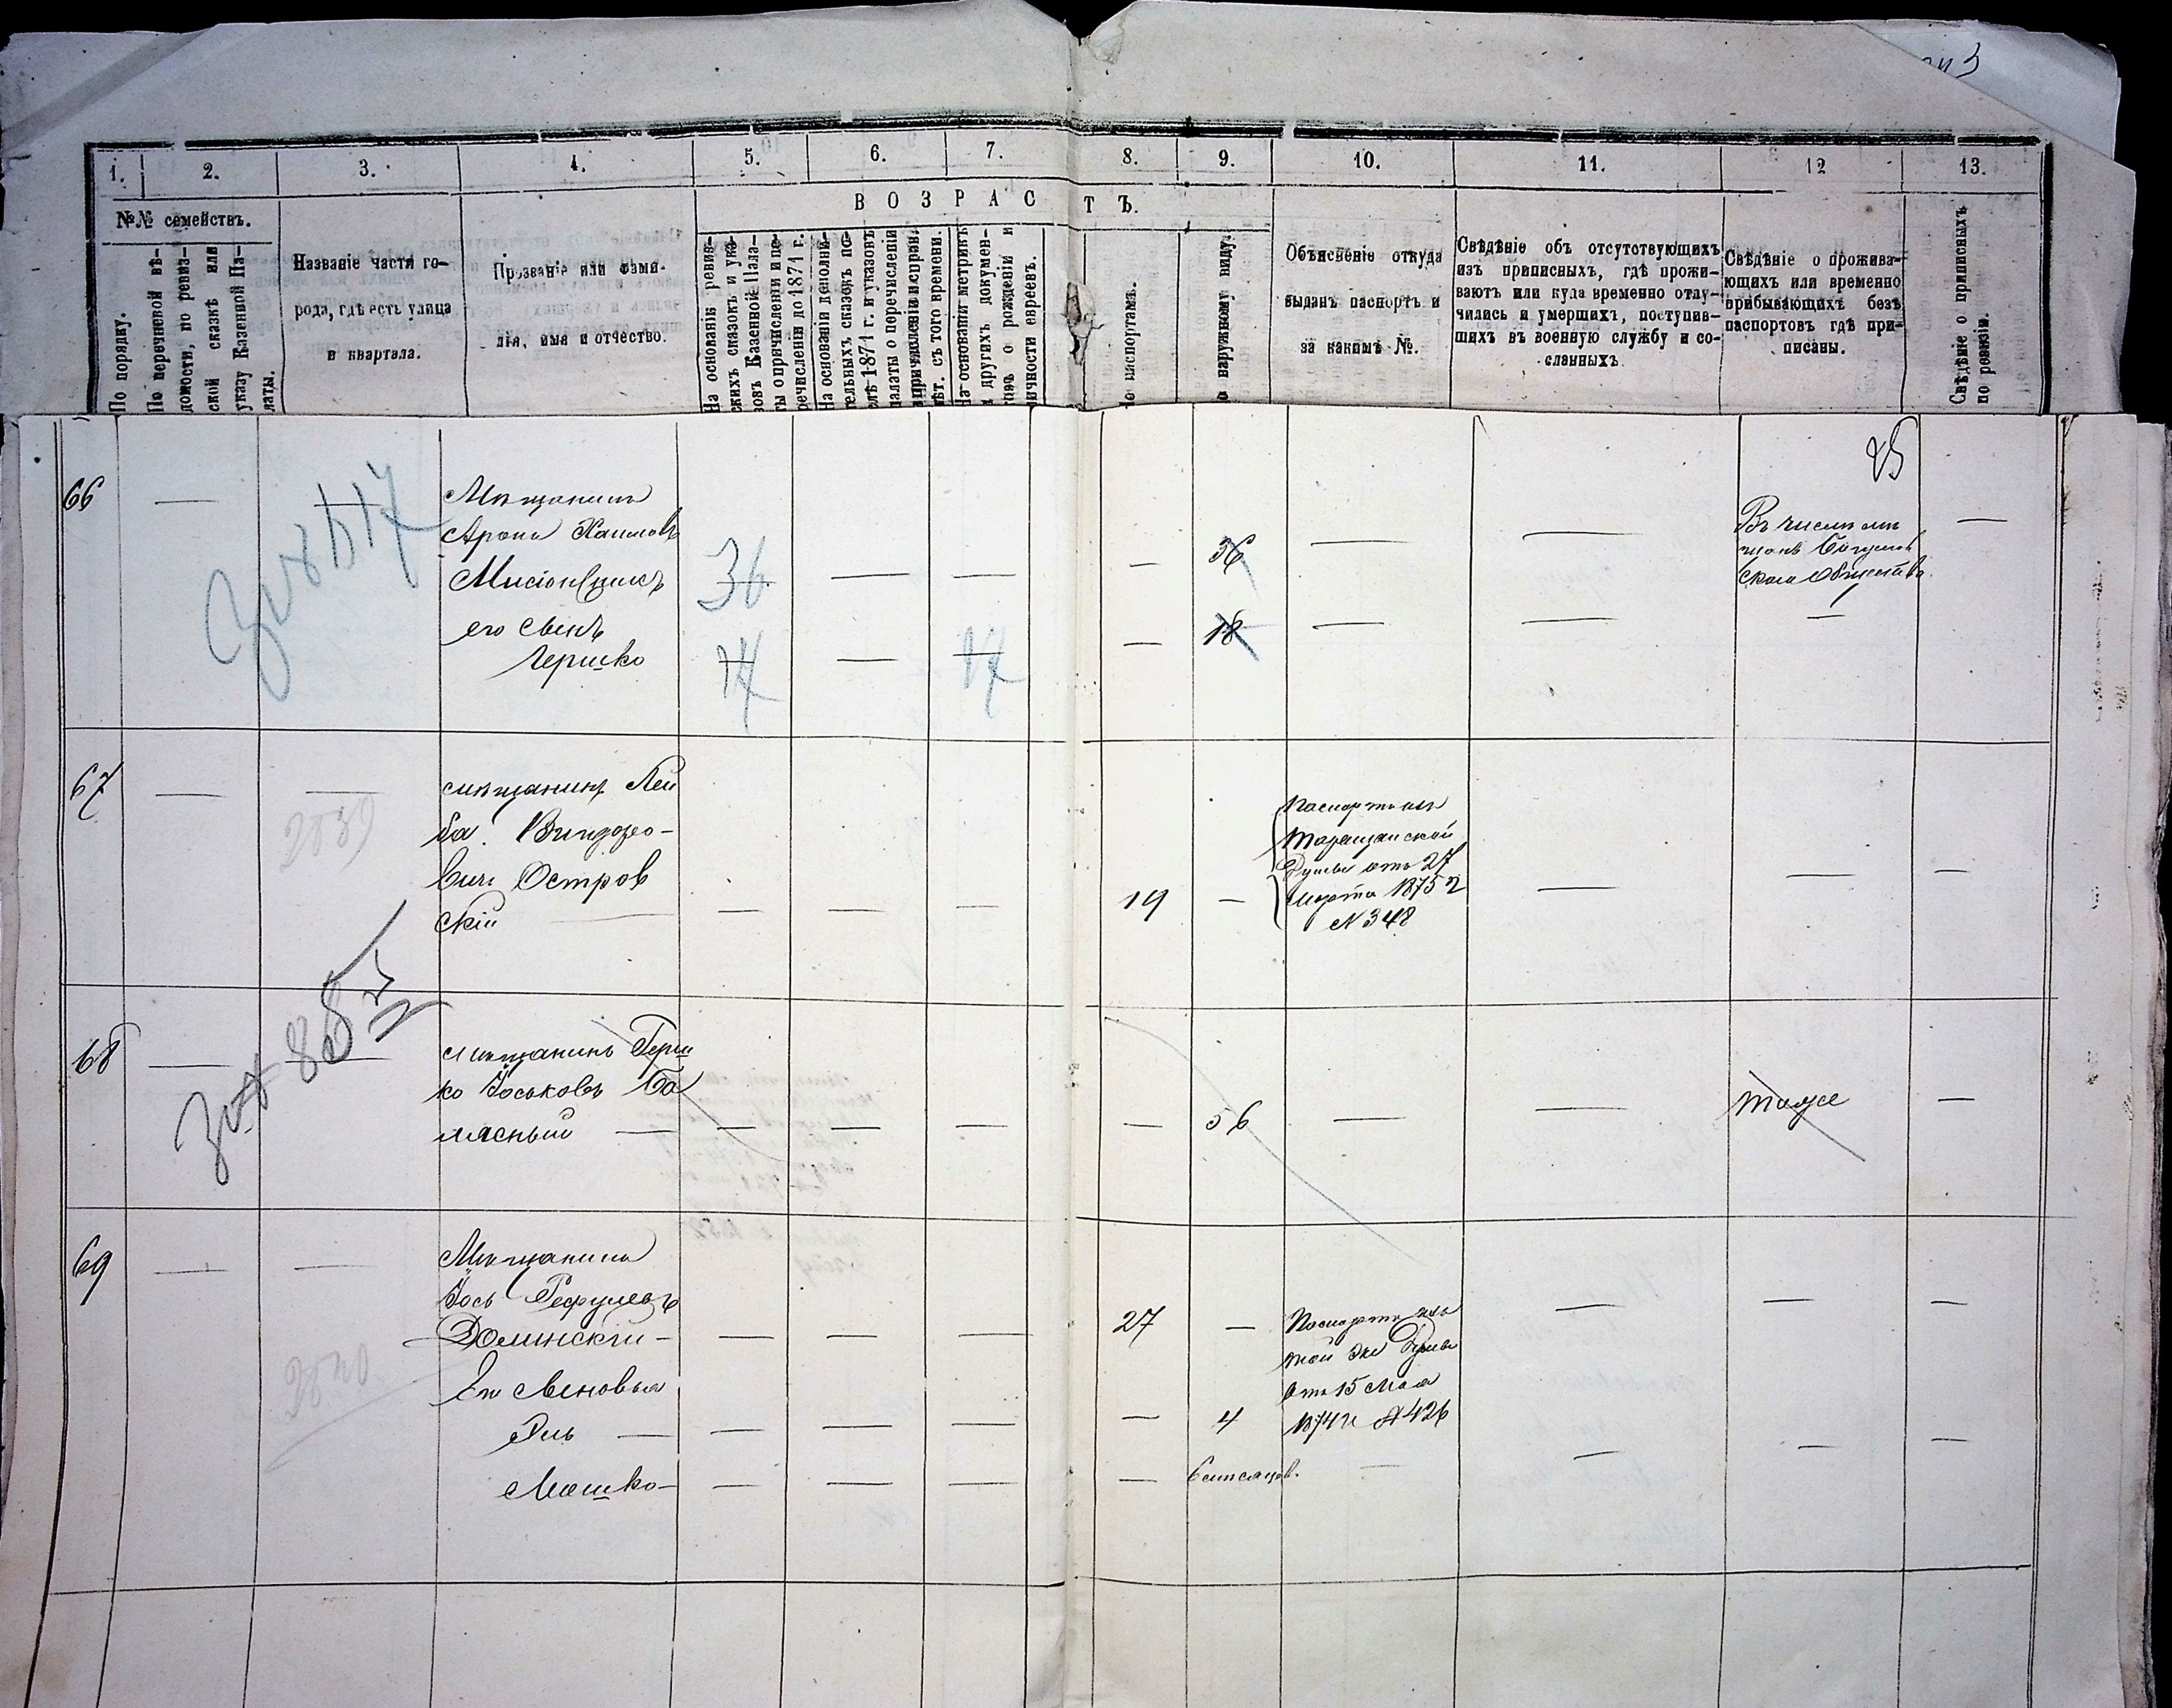 1. 2. 3. 4. 5. 6. 7. 8. 9. 10. 11. 12 13.
ВОЗРАСТЪ.
№№ семействъ.
По порядку.
По перечневой вѣ-
домости, по ревиз-
ской сказкѣ или
указу Казенной Па-
латы.
Названіе части го-
рода, гдѣ есть улица
и квартала.
Прозваніе или фами-
лія, имя и отчество.
На основаніи ревиз-
скихъ сказокъ и ука-
зовъ Казенной Пала-
ты о причисленіи и пе-
речисленіи до 1871 г.
На основаніи дополни-
тельныхъ сказокъ по-
слѣ 1871 г. и указовъ
палаты о перечисленіи
съ того времени.
На основаніи метрикъ
и другихъ докумен-
о рожденіи и
личности евреевъ.
По паспортамъ.
По наружному виду.
Объясненіе откуда
выданъ паспортъ и
за какимъ №.
Свѣдѣніе объ отсутствующихъ
изъ приписныхъ, гдѣ прожи-
ваютъ или куда временно отлу-
чились и умершихъ, поступив-
шихъ въ военную службу и со-
сланныхъ.
Свѣдѣніе о прожива-
ющихъ или временно
прибывающихъ безъ
паспортовъ гдѣ при-
писаны.
Свѣдѣніе о приписныхъ
по ревизіи.
66
Мѣщанинъ
Аронъ Хаимовъ
36
36
его сынъ
Гершко
17
17
18
Въ числѣ мѣ
щанъ
скаго Общества
67
мѣщанинъ Лей
ба
вичъ Остров
скій
19
Паспортъ изъ
Таращанской
Думы отъ 27
Марта 1875 г
№ 348
2839
68
мѣщанинъ Герш
ко Йоськовъ Ба
лясный
56
тоже
69
Мѣщанинъ
Йось
Долинскій
27
Паспортъ изъ
той же Думы
отъ 15 Мая
1874 г № 426
Его сыновья
4
Мошко
6 мѣсяцовъ.
2840